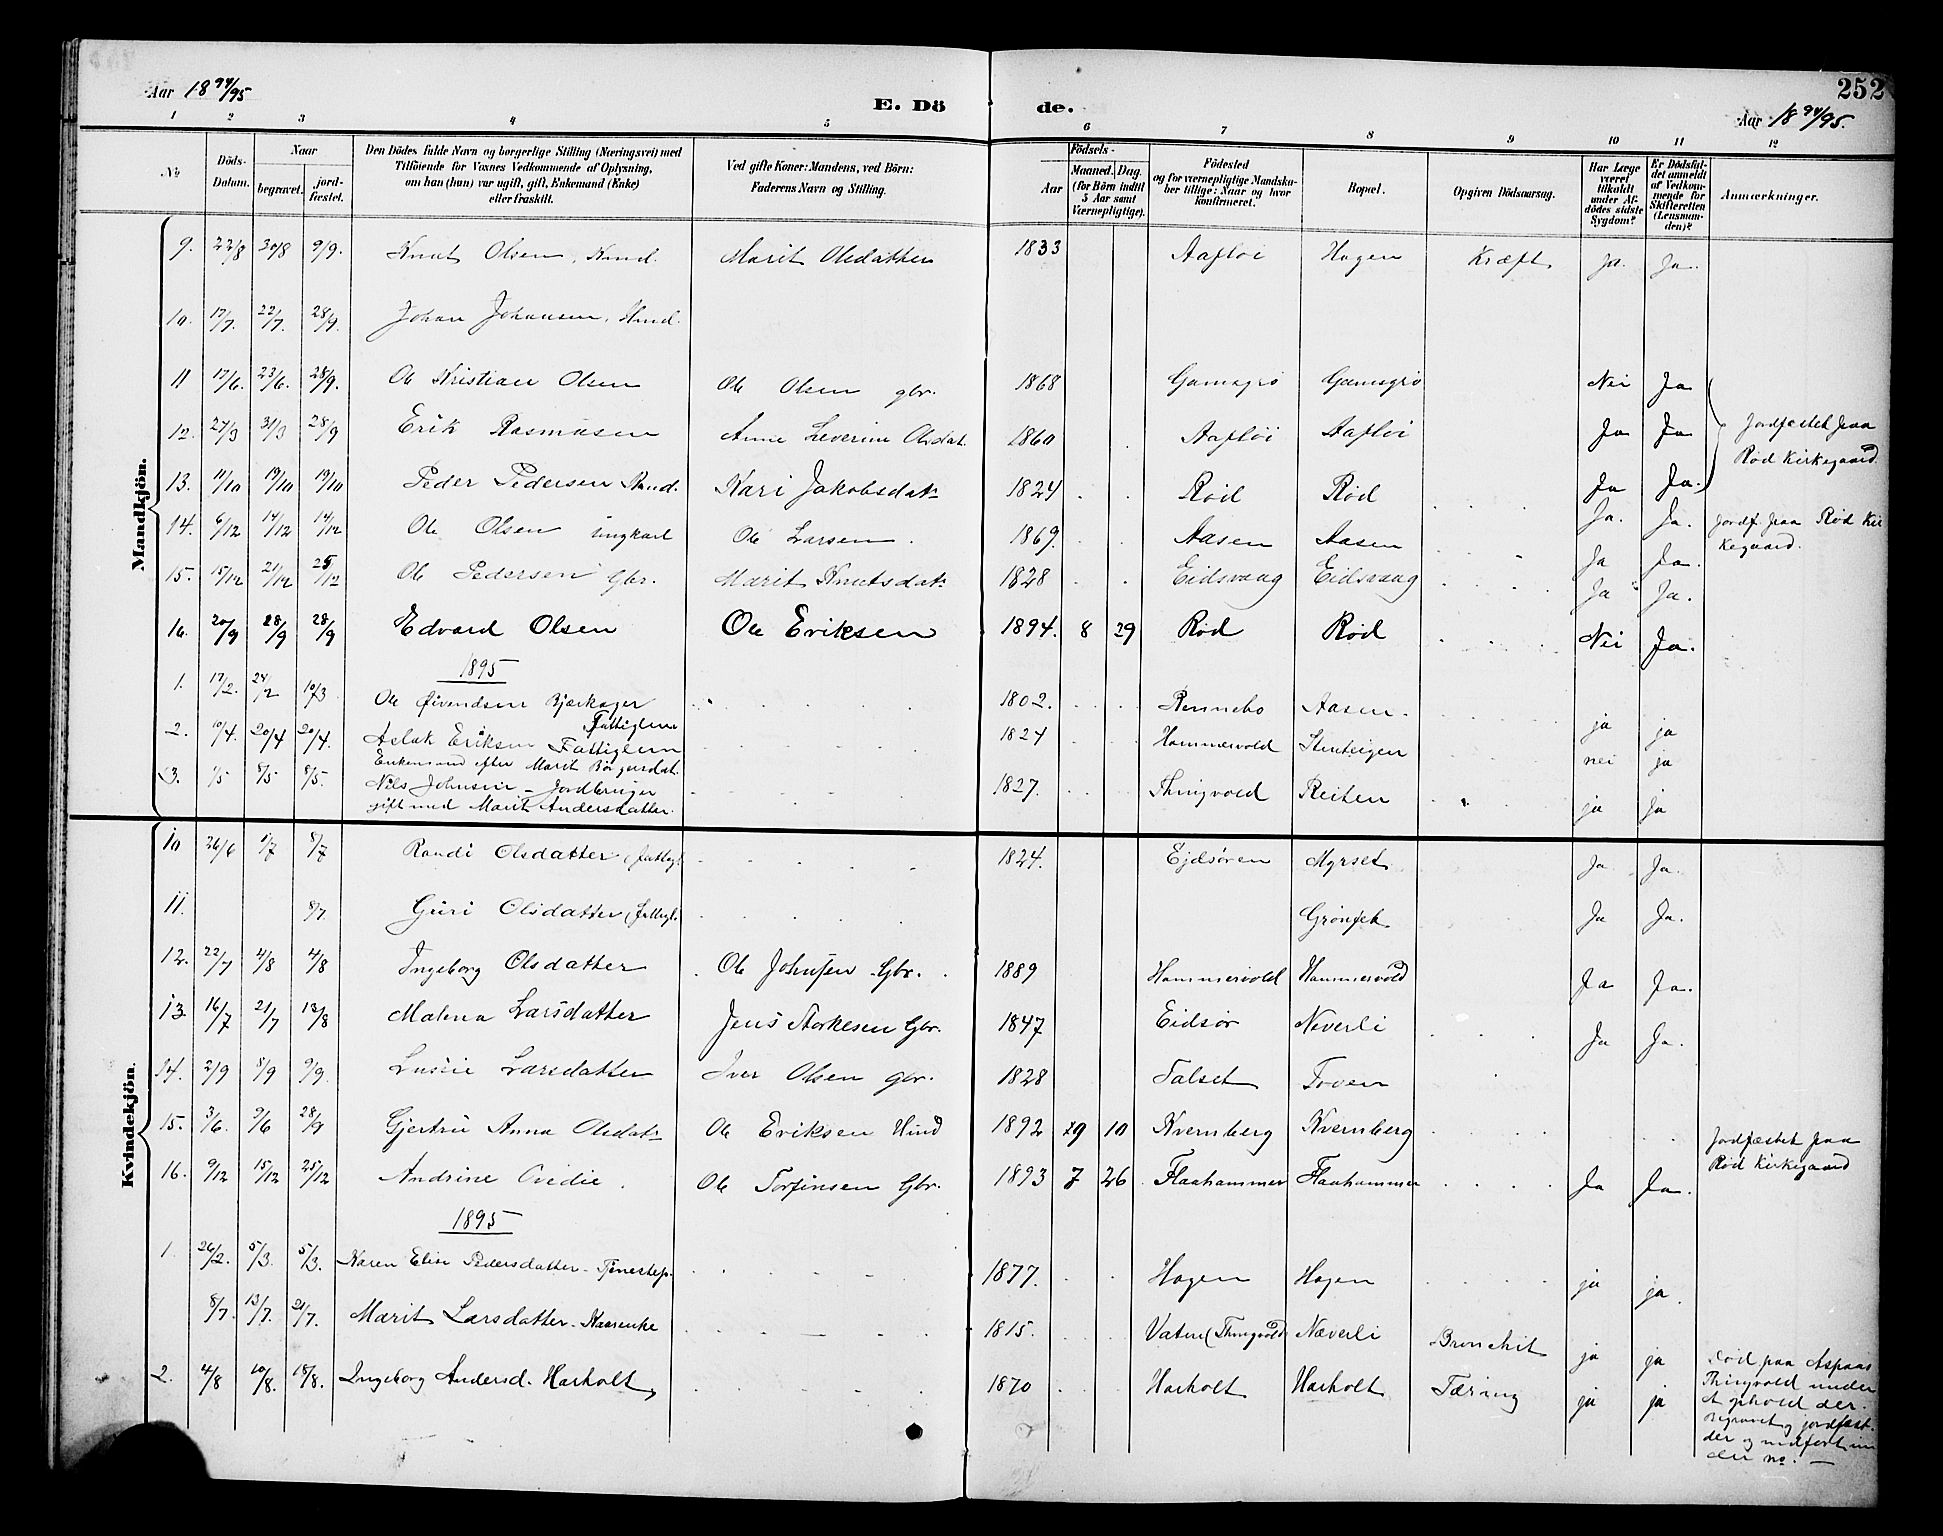 252
Aar 18 94/95
E. Dö de.
Aar 18 94/95.
1 2 3 4 5 6 7 8 9 10 11 12
No
Döds-Datum.
Naar
begravet.
jord-fæstet.
Den Dödes fulde Navn og borgerlige Stilling (Næringsvei) med
Tilföiende for Voxnes Vedkommende af Oplysning,
om han (hun) var ugift, gift, Enkemand (Enke)
eller fraskilt.
Ved gifte Koner: Mandens, ved Börn:
Faderens Navn og Stilling.
Födsels-
Aar
Maaned. Dag.
(for Börn indtil
5 Aar samt
Værnepligtige).
Födested
og for værnepligtige Mandska-
ber tillige: Naar og hvor
konfirmeret.
Bopæl.
Opgiven Dödsaarsag.
Har Læge
været
tilkaldt
under Af-
dödes sidste
Sygdom?
Er Dödsfal-
det anmeldt
af Vedkom-
mende for
Skifteretten
(Lensman-
den)?
Anmærkninger.
Mandkjön.
9. 22/8 30/8 9/9. Knut Olsen, Kmd. Marit Olsdatter 1833 Aafloi Hagen Kræft Ja. Ja.
10. 17/7. 22/7. 28/9. Johan Johansen,
11 17/6. 23/6. 28/9. Ole Kristian Olsen Ole Olsen gbr. 1868 Gamsgrø Gamsgrø Nei Ja
12. 27/3 31/3 28/9 Erik Rasmusen Anne Severine Olsdat. 1860 Aafloi Aafloi Ja Ja Jordfæstet paa
Rød Kirkegaard
13. 11/10 19/10 19/10 Peder Pedersen Kari Jakobsdat. 1824 Rød Rød Ja Ja.
14. 6/12 14/12 14/12 Ole Olsen ungkarl Ole Larsen. 1869. Aasen Aasen Ja. Ja. Jordf. paa Rød Kir
kegaard.
15. 15/12 21/12 25/12 Ole Pedersen Gbr. Marit Knutsdat. 1828 Eidsvaag Eidsvaag Ja Ja.
Ja Ja.
16. 20/9 28/9 28/9 Edvard Olsen Ole Eriksen 1894. 8 29 Rød Rød Nei Ja.
1895
1. 17/2. 24/2 10/3. Ole Øivendsen Bjerkager
Fattiglem 1802. Rennebo Aasen. ja ja
2. 10/4. 20/4 20/4. Aslak Eriksen Fattiglem
Enkemand efter Marit Börgersdat. 1824 Hammervold Stenteigen nei ja
3. 1/5 8/5 8/5. Nils Johnsen - Jordbruger
gift med Marit Andersdatter. 1827. Thingvold Reiten ja ja
Kvindekjön.
10 26/6 1/7 8/7 Randi Olsdatter (fattigl. 1824. Ejdsøren Myrset Ja Ja.
11. 8/7 Guri Olsdatter (fattigl. Ja Ja.
12. 22/7 4/8 4/8 Ingeborg Olsdatter Ole Johnsen Gbr. 1889 Hammervold Hammervold Ja Ja.
13 16/7 21/7 12/8 Malena Larsdatter Jens Storkesen Gbr. 1847 Eidsør Neverli Ja Ja.
14. 2/9 8/9 9/9. Larsdatter Iver Olsen gbr. 1828 Talset Toven
15. 3/6. 9/6 28/9 Gjertru Anna Olsdat. Ole Eriksen 1892 9 10 Kvernberg Kvernberg Jordfæstet paa
Rød Kirkegaard
16. 9/12 15/12 25/12 Andrine Ovedie. Ole Torfinsen Gbr. 1893 7 26 Flaahammer Flaahammer Ja Ja.
1895
1. 26/2. 5/3. 5/3. Karen Elise Pedersdatter - Tjenestep. 1877. Hagen Hagen ja ja.
8/7. 13/7. 21/7. Marit Larsdatter - Kaarenke 1815. (Thingvold) Næverli Bronchit ja ja
2. 4/8 10/8. 18/8. Ingeborg Andersd. Harholt 1870 Harholt Harholt Tæring ja ja
Død paa Aspaas
Thingvold under
ophold der.
Begravet og jordfæst.
der og indført un
der no. —